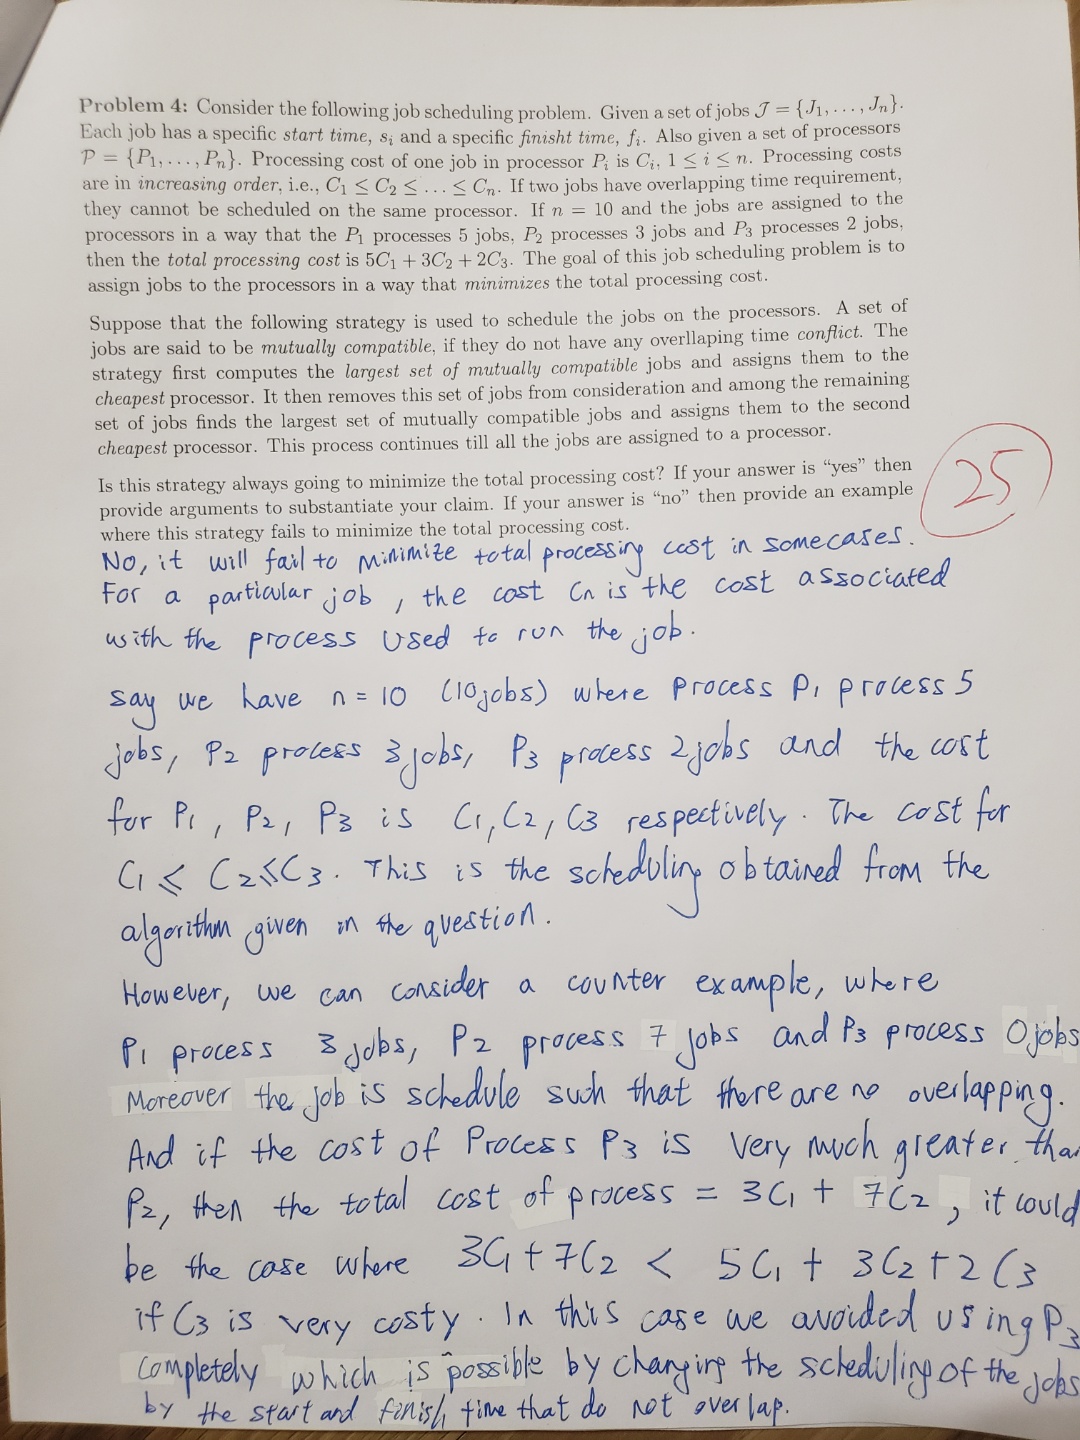 Problem 4: Consider the following job scheduling problem. Given a set of jobs J = {J1, . . . , Jn}.
Each job has a specific start time, si and a specific finisht time, fi. Also given a set of processors
P = {P1, . . . , Pn}. Processing cost of one job in processor Pi is Ci, 1 ≤ i ≤ n. Processing costs
are in increasing order, i.e., C1 ≤ C2 ≤ . . . ≤ Cn. If two jobs have overlapping time requirement,
they cannot be scheduled on the same processor. If n = 10 and the jobs are assigned to the
processors in a way that the P1 processes 5 jobs, P2 processes 3 jobs and P3 processes 2 jobs,
then the total processing cost is 5C1 + 3C2 + 2C3. The goal of this job scheduling problem is to
assign jobs to the processors in a way that minimizes the total processing cost.
Suppose that the following strategy is used to schedule the jobs on the processors. A set of
jobs are said to be mutually compatible, if they do not have any overllaping time conflict. The
strategy first computes the largest set of mutually compatible jobs and assigns them to the
cheapest processor. It then removes this set of jobs from consideration and among the remaining
set of jobs finds the largest set of mutually compatible jobs and assigns them to the second
cheapest processor. This process continues till all the jobs are assigned to a processor.
Is this strategy always going to minimize the total processing cost? If your answer is “yes” then
provide arguments to substantiate your claim. If your answer is “no” then provide an example
where this strategy fails to minimize the total processing cost.
25
No, it will fail to minimize total processing cost in some cases.
For a particular job, the cost Cn is the cost associated
with the process used to run the job.
say we have n = 10 (10jobs) where process P1 process 5
jobs, P2 process 3 jobs, P3 process 2 jobs and the cost
for P1, P2, P3 is C1, C2, C3 respectively. The cost for
C1 ≤ C2 ≤ C3. This is the scheduling obtained from the
algorithm given in the question.
However, we can consider a counter example, where
P1 process 3 jobs, P2 process 7 jobs and P3 process 0 jobs
Moreover the job is schedule such that there are no overlapping.
And if the cost of Process P3 is very much greater than
P2, then the total cost of process = 3C1 + 7C2, it could
be the case where 3C1 + 7C2 < 5C1 + 3C2 + 2C3
if C3 is very costy. In this case we avoided using P3
completely which is possible by changing the scheduling of the jobs
by the start and finish time that do not overlap.